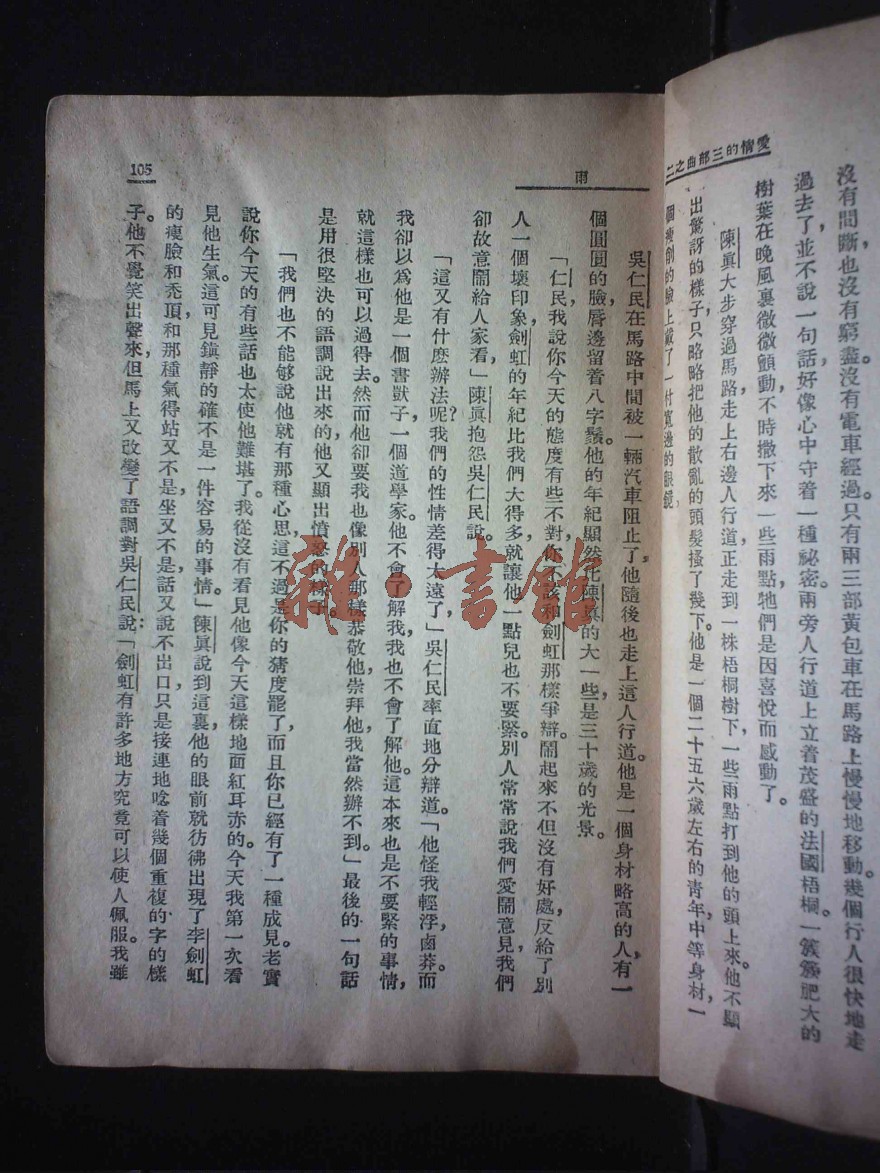 愛情的三部曲之二
沒有間斷也沒有窮盡。沒有電車經過。只有兩三部黃包車在馬路上慢慢地移動。幾個行人很快地走
過去了，並不說一句話，好像心中守着一種祕密。兩旁人行道上立着茂盛的法國梧桐。一簇簇肥大的
樹葉在晚風裏微微顫動，不時撒下來一些雨點，牠們是因喜悅而感動了。
陳眞大步穿過馬路，走上右邊人行道，正走到一株梧桐樹下，一些雨點打到他的頭上來。他不顯
出驚訝的樣子，只略略把他的散亂的頭髮搔了幾下。他是一個二十五六歲左右的青年，中等身材，一
個瘦削的臉上戴了一付寬邊的眼鏡，
雨
105
吳仁民在馬路中間被一輛汽車阻止了，他隨後也走上這人行道。他是一個身材略高的人，有一
個圓圓的臉，脣邊留着八字鬚。他的年紀顯然比陳眞的大一些，是三十歲的光景。
「仁民，我說你今天的態度有些不對，你不該和劍虹那樣爭辯。鬧起來不但沒有好處，反給了別
人一個壞印象，劍虹的年紀比我們大得多，就讓他一點兒也不要緊。別人常常說我們愛鬧意見，我們
卻故意鬧給人家看，」陳眞抱怨吳仁民說。
「這又有什麽辦法呢？我們的性情差得太遠了，」吳仁民率直地分辯道。「他怪我輕浮，鹵莽。而
我卻以爲他是一個書獃子，一個道學家。他不會了解我，我也不會了解他。這本來也是不要緊的事情，
就這樣也可以過得去。然而他卻要我也像別人那樣恭敬他，崇拜他，我當然辦不到。」最後的一句話
是用很堅決的語調說出來的，他又顯出憤怒的樣子。
「我們也不能夠說他就有那種心思，這不過是你的猜度罷了，而且你已經有了一種成見。老實
說你今天的有些話也太使他難堪了。我從沒有看見他像今天這樣地面紅耳赤的。今天我第一次看
見他生氣。這可見鎭靜的確不是一件容易的事情。」陳眞說到這裏，他的眼前就彷彿出現了李劍虹
的瘦臉和禿頂，和那種氣得站又不是，坐又不是，話又說不出口，只是接連地唸着幾個重複的字的樣
子。他不覺笑出聲來，但馬上又改變了語調對吳仁民說：「劍虹有許多地方究竟可以使人佩服。我雖
雜·書館